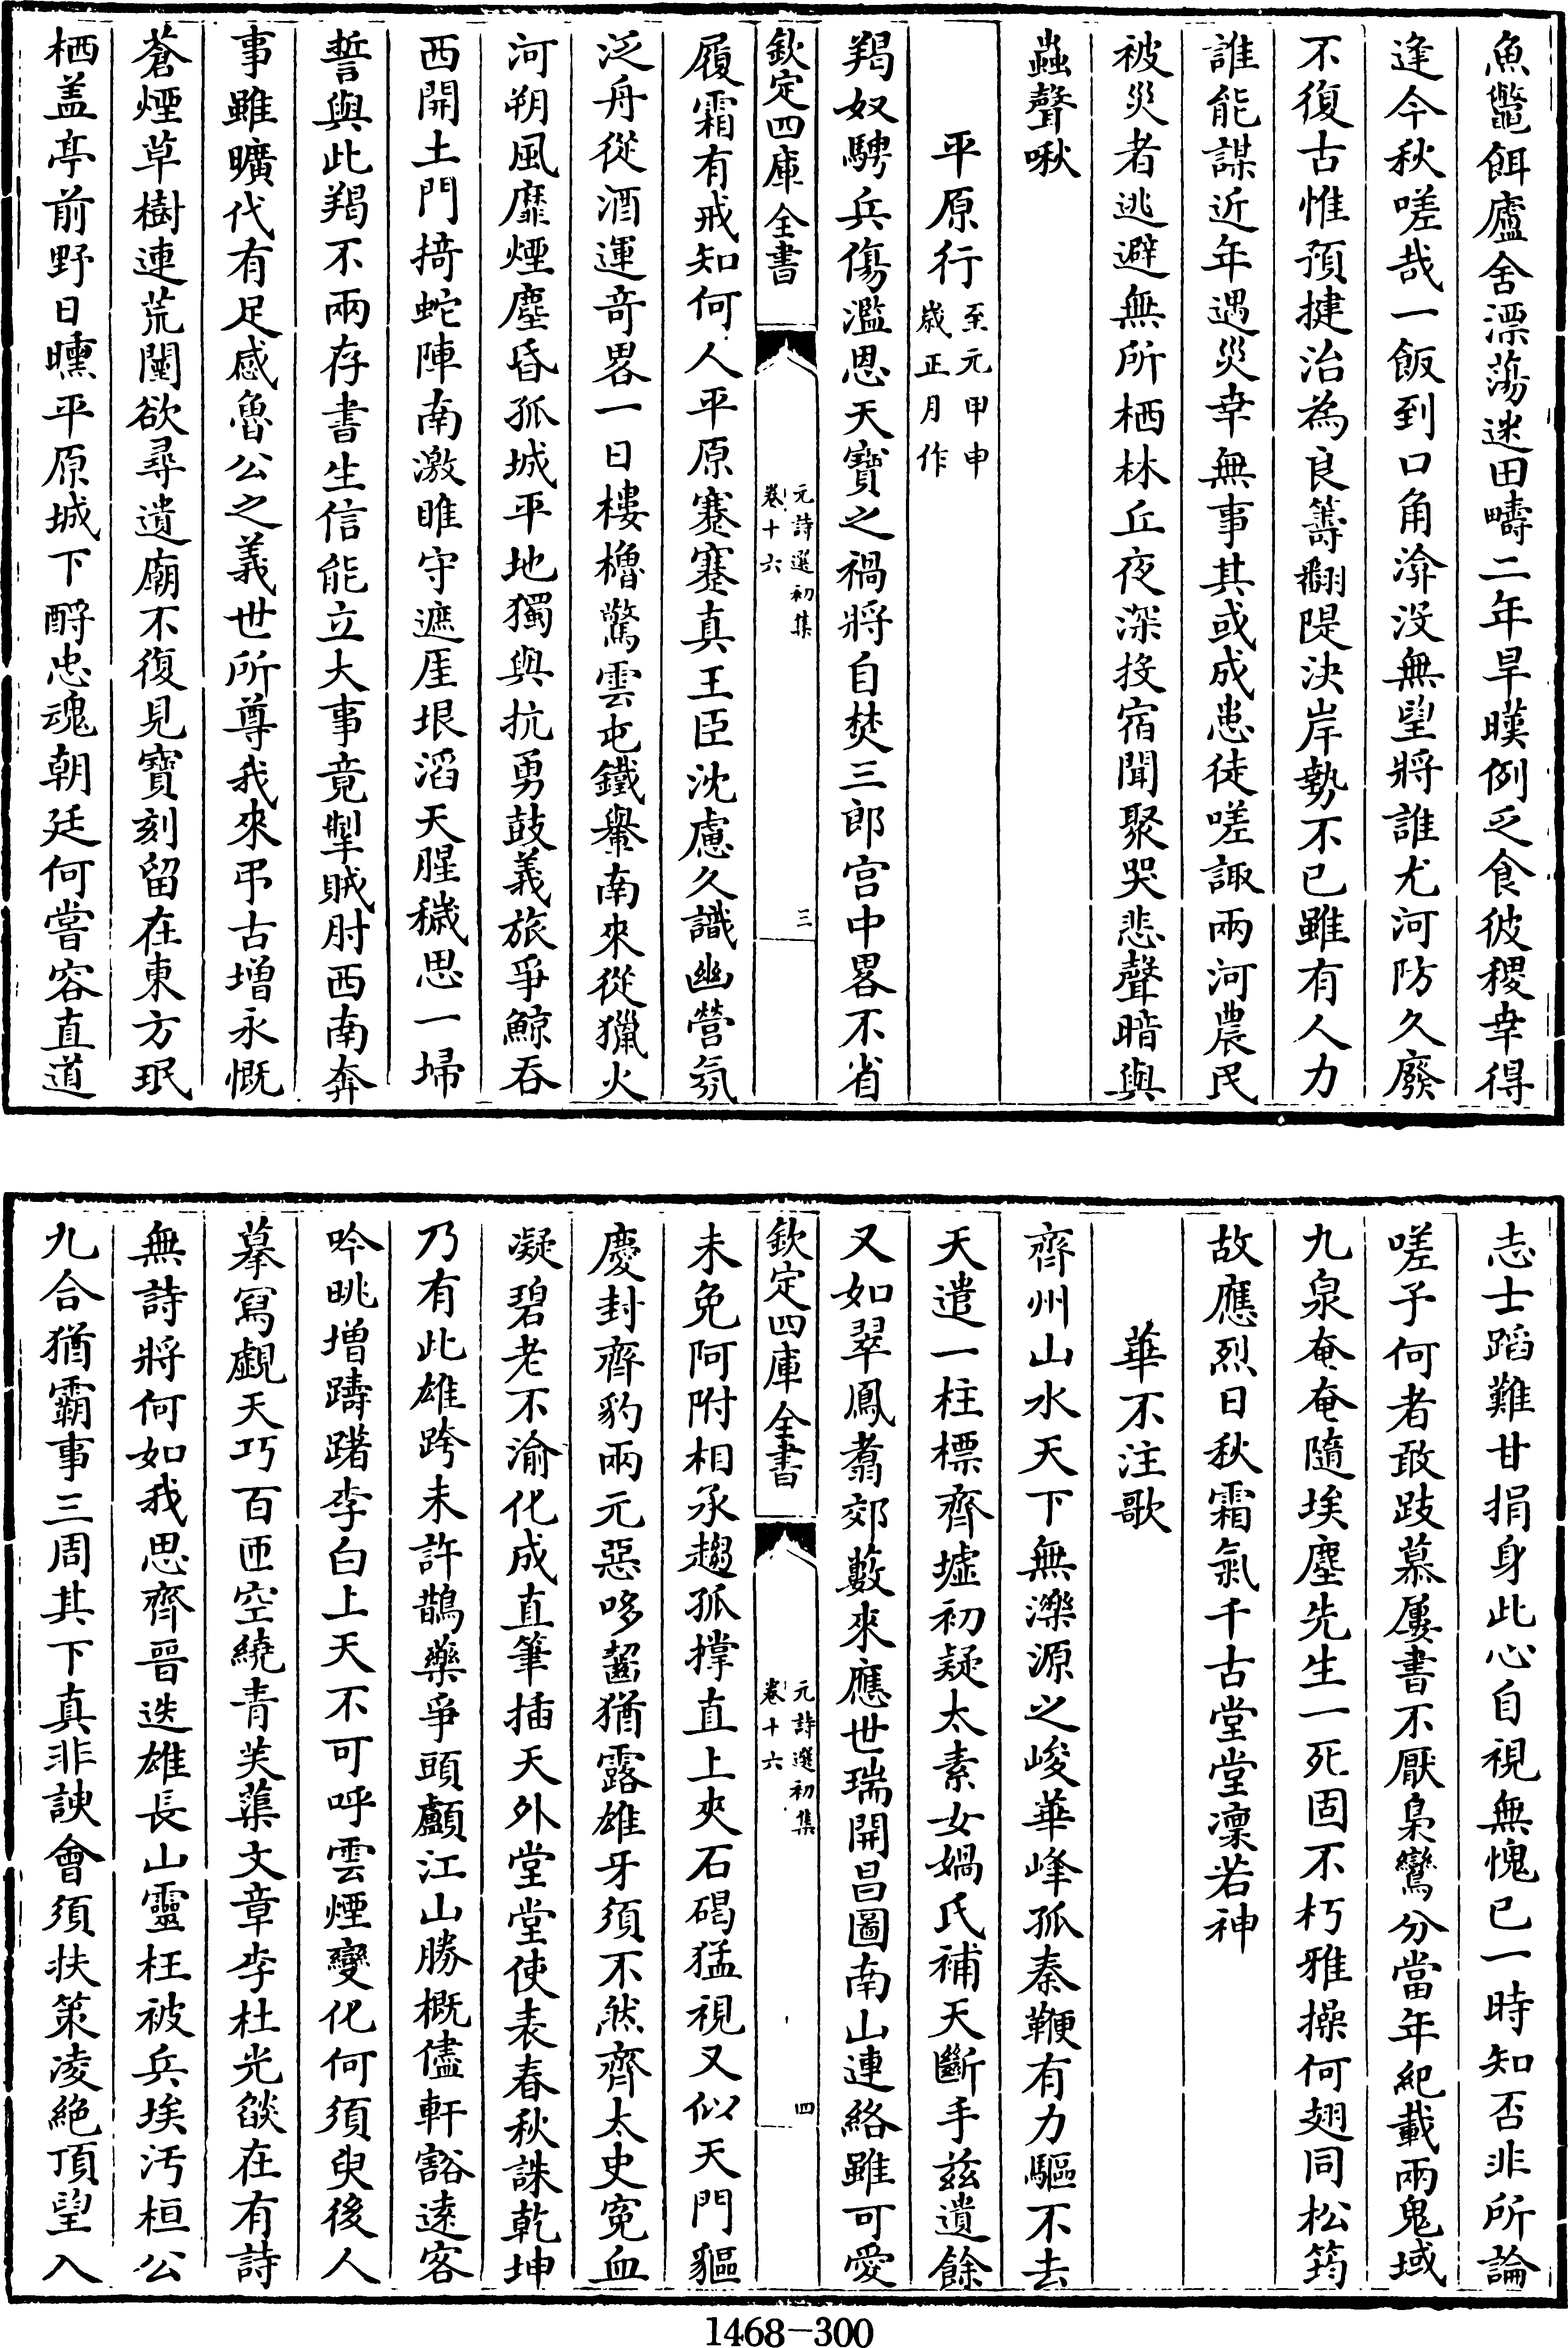 魚鼈餌廬舍漂蕩迷田疇二年旱暵例乏食彼稷幸得
逢今秋嗟哉一飯到口角渰没無望將誰尤河防久廢
不復古惟預揵治為良籌翻隄決岸勢不已雖有人力
誰能謀近年遇災幸無事其或成患徒嗟諏兩河農民
被災者逃避無所栖林丘夜深投宿聞聚哭悲聲暗與
蟲聲啾
平原行至元甲申
歲正月作
羯奴騁兵傷濫恩天寶之禍將自焚三郎宫中畧不省
欽定四庫全書
元詩選初集
卷十六
三
履霜有戒知何人平原蹇蹇真王臣沈慮久識幽營氛
泛舟從酒運竒畧一日樓櫓驚雲屯鐵轝南來從獵火
河朔風靡煙塵昏孤城平地獨與抗勇鼓義旅爭鯨吞
西開土門掎蛇陣南激睢守遮厓垠滔天腥穢思一埽
誓與此羯不兩存書生信能立大事竟掣賊肘西南奔
事雖曠代有足感魯公之義世所尊我來弔古增永慨
蒼煙草樹連荒闉欲尋遺廟不復見寶刻留在東方珉
栖盖亭前野日曛平原城下酹忠魂朝廷何嘗容直道
志士蹈難甘捐身此心自視無愧已一時知否非所論
嗟子何者敢跂慕屢書不厭梟鸞分當年紀載兩鬼域
九泉奄奄隨埃塵先生一死固不朽雅操何翅同松筠
故應烈日秋霜氣千古堂堂凛若神
華不注歌
齊州山水天下無濼源之峻華峰孤秦鞭有力驅不去
天遣一柱標齊墟初疑太素女媧氏補天斷手兹遺餘
又如翠鳳翥郊藪來應世瑞開昌圖南山連絡雖可愛
欽定四庫全書
元詩選初集
卷十六
四
未免阿附相承趨孤撐直上夾石碣猛視又似天門貙
慶封齊豹兩元惡哆齧猶露雄牙須不然齊太史寃血
凝碧老不渝化成直筆插天外堂堂使表春秋誅乾坤
乃有此雄跨未許鵲藥爭頭顱江山勝概儘軒豁逺客
吟眺增躊躇李白上天不可呼雲煙變化何須臾後人
摹寫覷天巧百匝空繞青芙蕖文章李杜光燄在有詩
無詩將何如我思齊晉迭雄長山靈枉被兵埃汚桓公
九合猶霸事三周其下真非諛會須扶策凌絶頂望入
1468-300